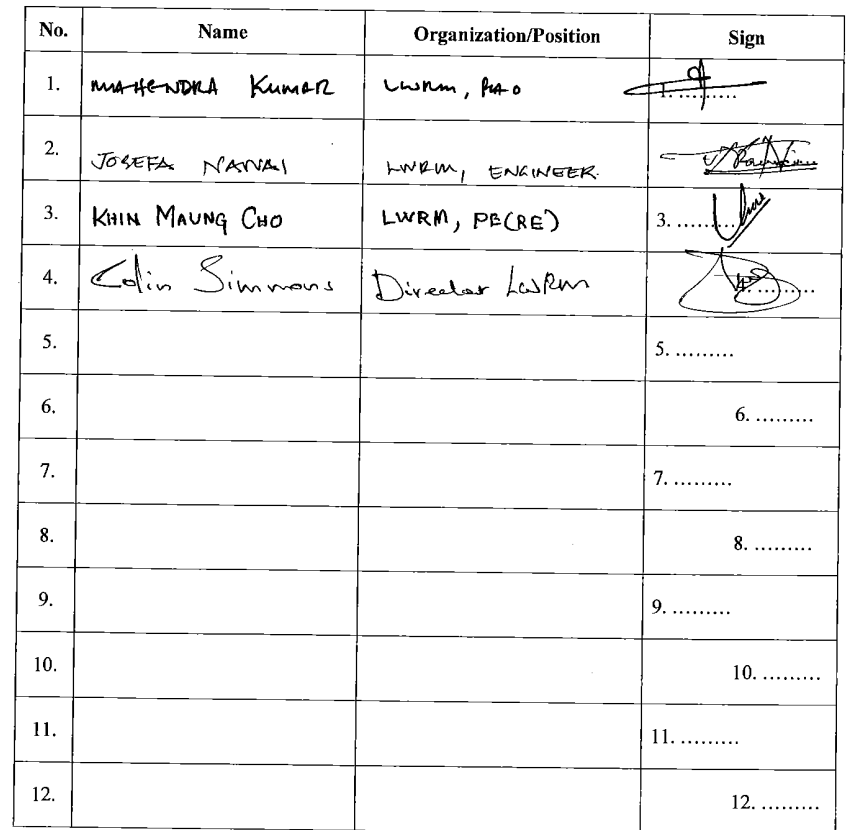 No. Name Organization/Position Sign
1. MAHENDRA KUMAR LWRM, PAO 1. .........
2. JOSEFA NAWAI LWRM, ENGINEER
3. KHIN MAUNG CHO LWRM, PE(RE) 3. .........
4. Colin Simmons Director LWRM 4. .........
5. 5. .........
6. 6. .........
7. 7. .........
8. 8. .........
9. 9. .........
10. 10. .........
11. 11. .........
12. 12. .........